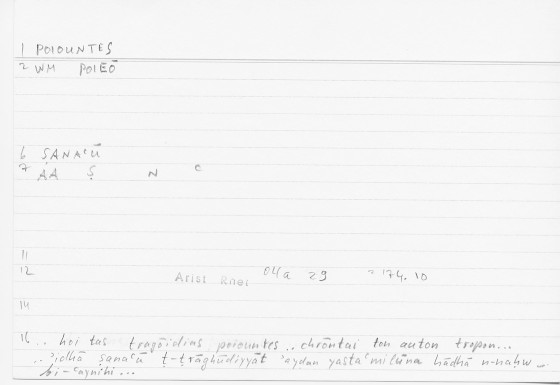 1 POIOUNTES
2 WM POIEŌ
6 ṢANAʿŪ
7 AA Ṣ N ʿ
11
12 Arist Rhet 04a 29 = 174.10
14
16 .. hoi tas tragōidias poiountes .. chrōntai ton auton tropon...
.. ʾidhā ṣanaʿū ṭ-ṭrāghūdiyyāt ʾayḍan yastaʿmilūna hādhā n-naḥw
bi-ʿaynihi ...